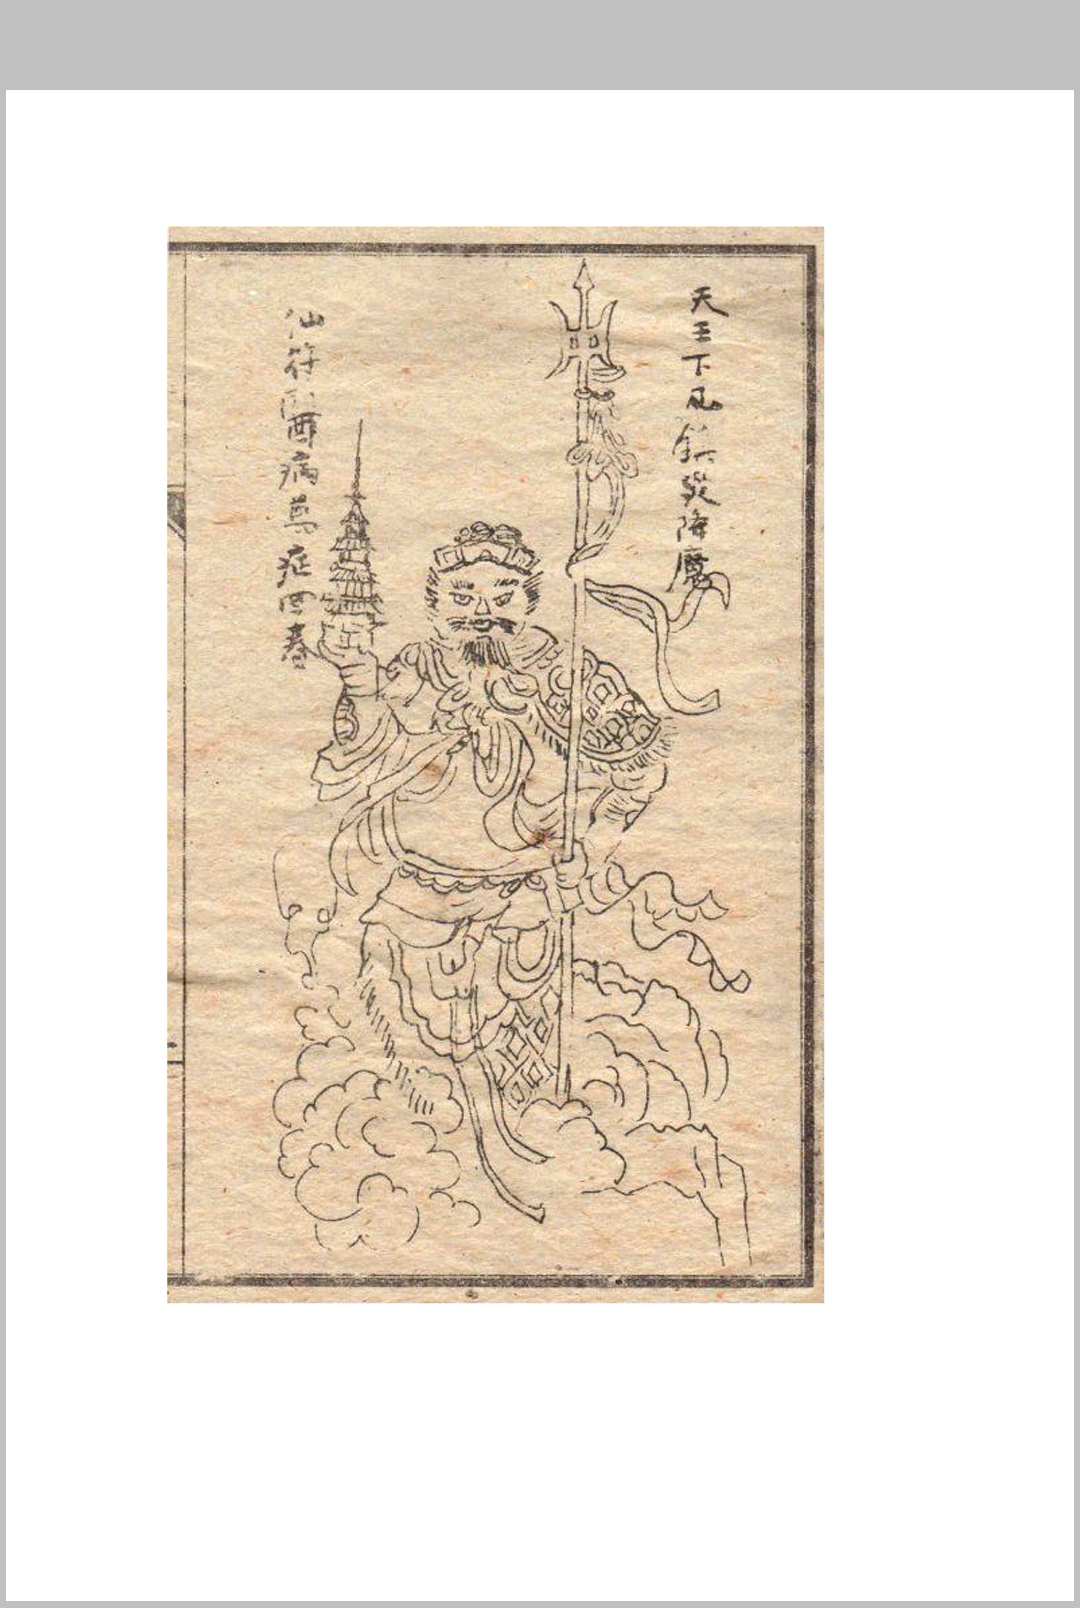 天王下凡鎮災降魔
仙符醫病萬症回春